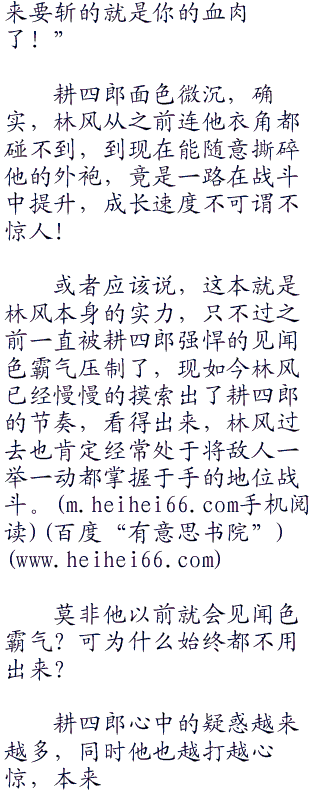 来要斩的就是你的血肉
了！”
耕四郎面色微沉，确
实，林风从之前连他衣角都
碰不到，到现在能随意撕碎
他的外袍，竟是一路在战斗
中提升，成长速度不可谓不
惊人！
或者应该说，这本就是
林风本身的实力，只不过之
前一直被耕四郎强悍的见闻
色霸气压制了，现如今林风
已经慢慢的摸索出了耕四郎
的节奏，看得出来，林风过
去也肯定经常处于将敌人一
举一动都掌握于手的地位战
斗。(m.heihei66.com手机阅
读)(百度“有意思书院”)
(www.heihei66.com)
莫非他以前就会见闻色
霸气？可为什么始终都不用
出来？
耕四郎心中的疑惑越来
越多，同时他也越打越心
惊，本来